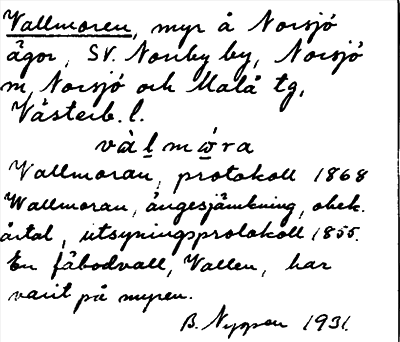 Vallmoren, myr å Norsjö
ägor, SV. Norrby by, Norsjö
sn, Norsjö och Malå tg,
Västerb. l.
vàlmóra
Vallmoran, protokoll 1868
Wallmoran, ängesjämkning, obek.
årtal, utsyningsprotokoll 1855.
En fäbodvall, Vallen, har
varit på myren.
B. Nygren 1931.